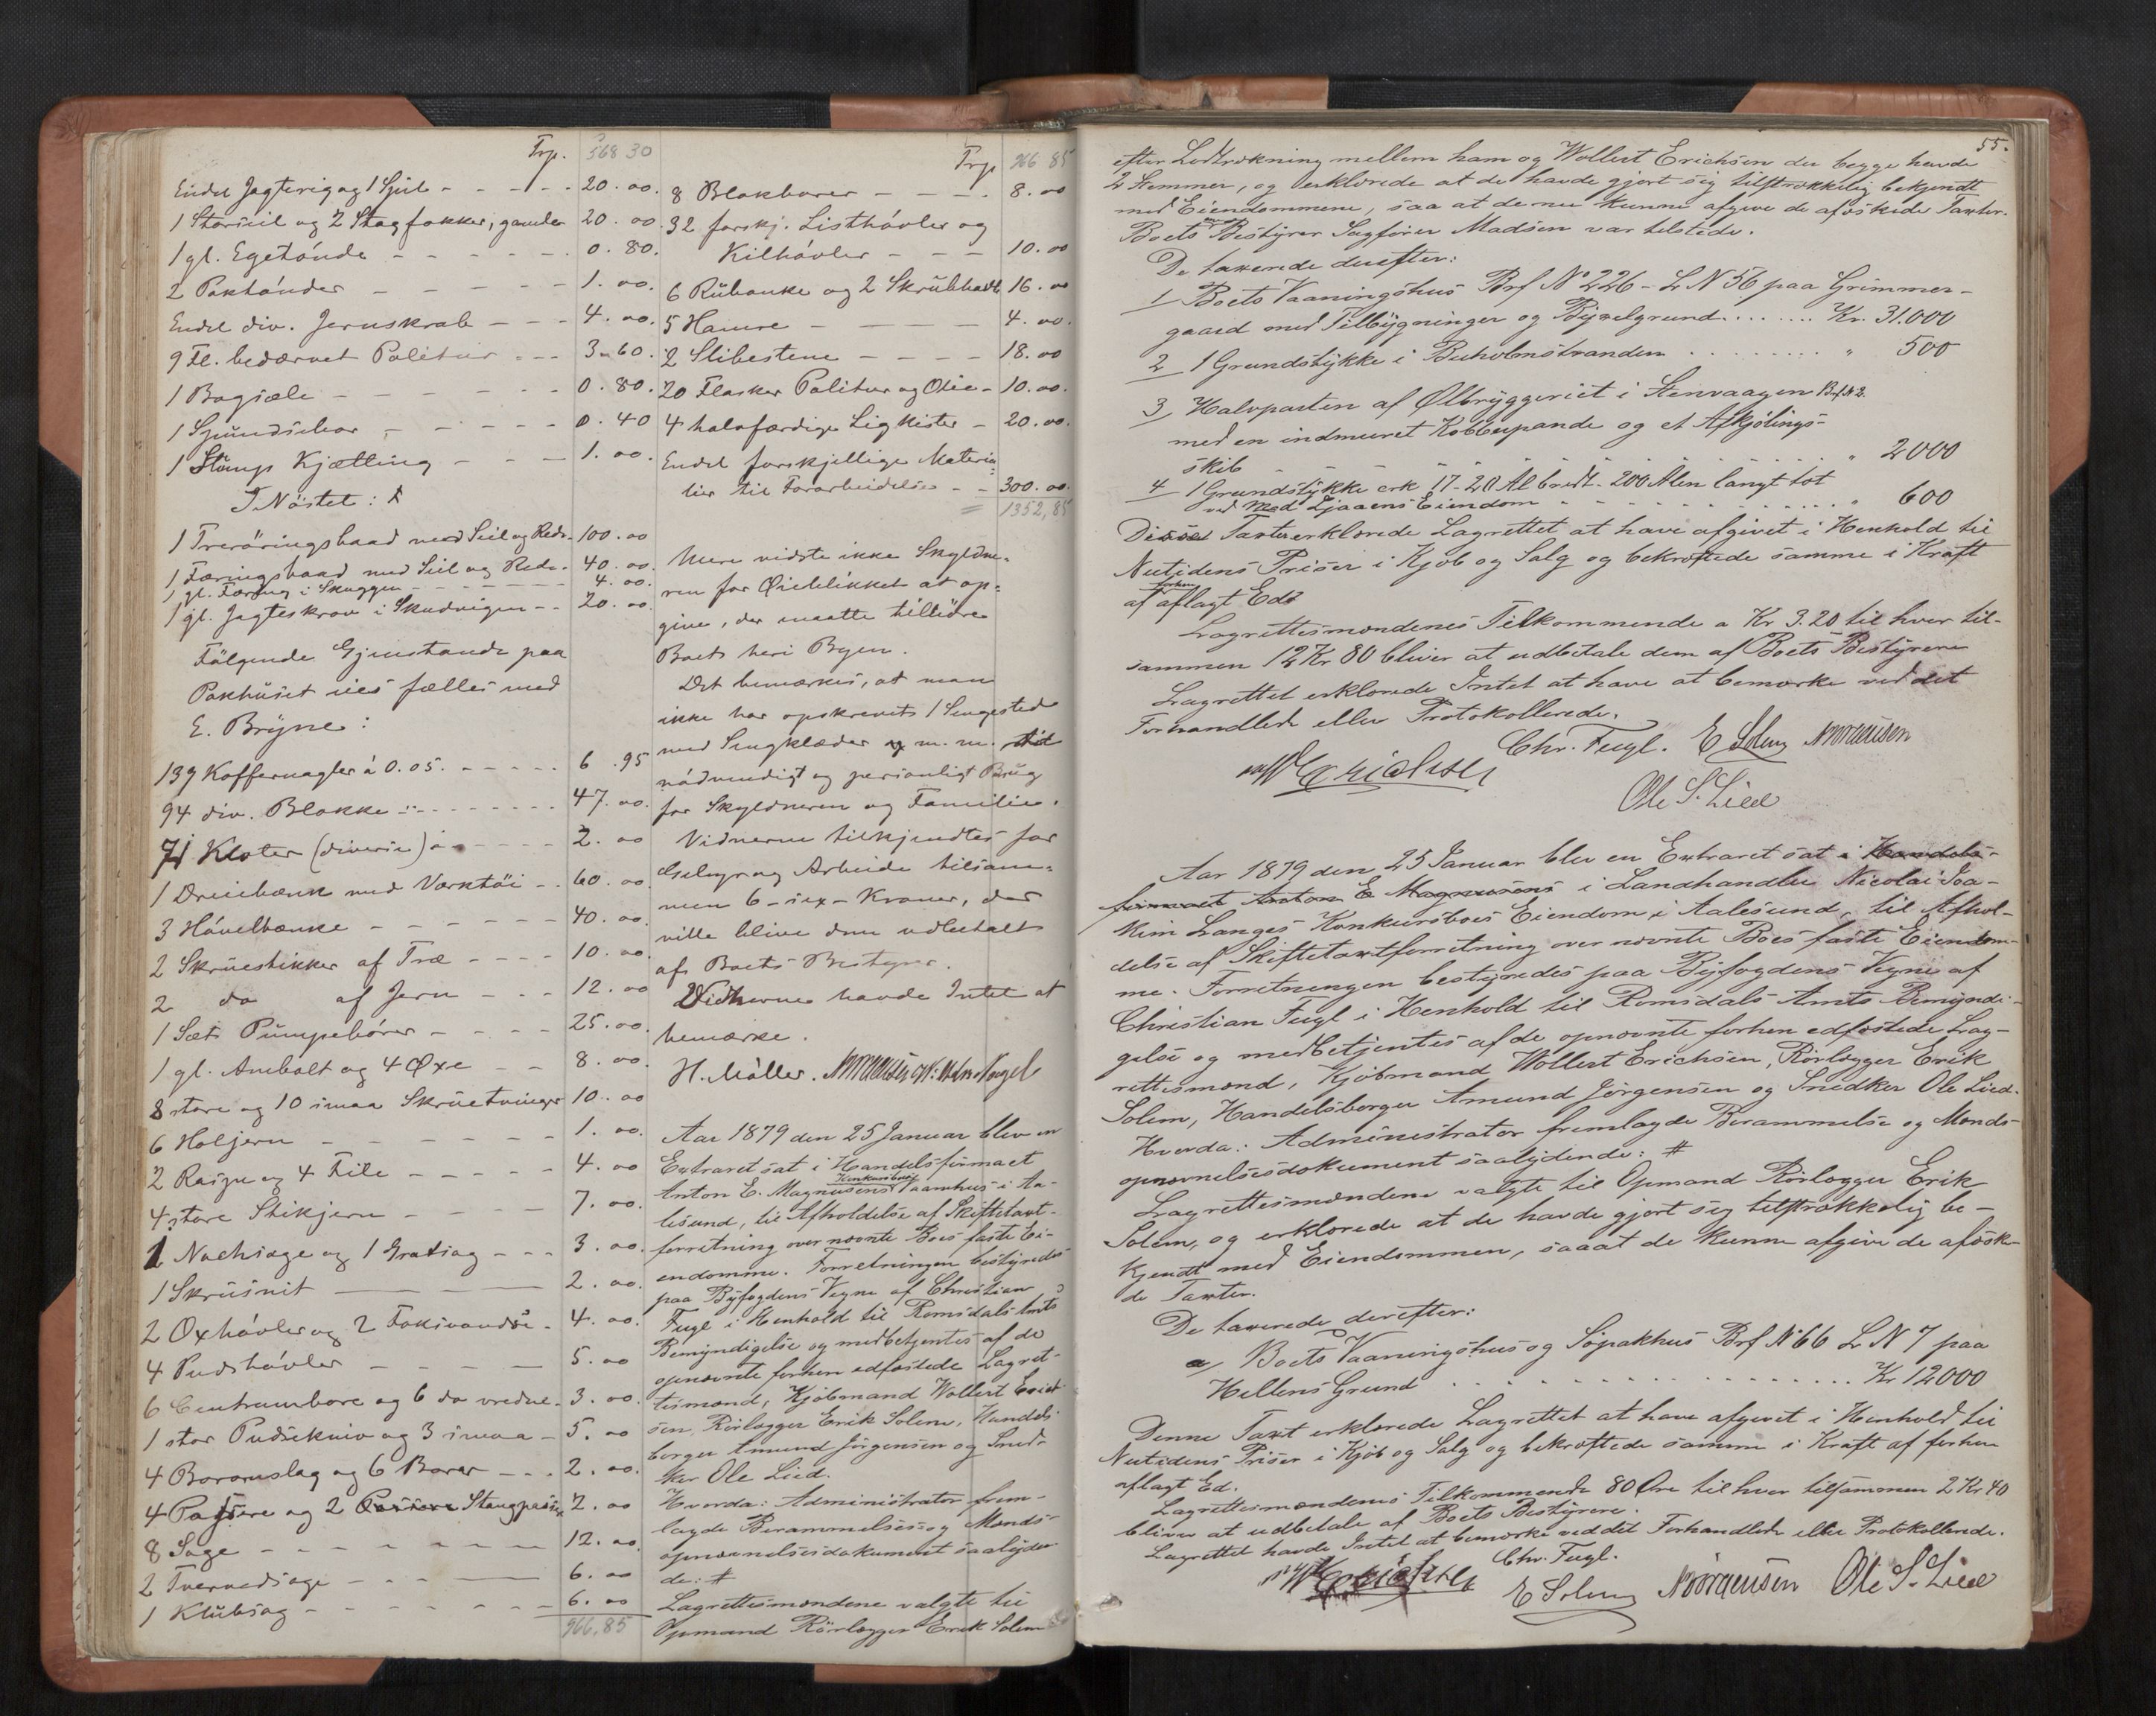 Trp. 368 30
Endel Jagterig og 1 Spil - - - - - 20. 00.
1 Storseil og 2 Stagfokker, gamle 20. 00.
1 gl. Egetönde - - - - - 0. 80.
2 Paktönder - - - - - 1. 00.
Endel div. Jernskrab - - - 4. 00.
9 Fl. bedærvet Politur - - - 3. 60.
1 Bogsæle - - - - - 0. 80.
1 - - - - - 0. 40
1 Stump Kjætting - - - 1. 00.
I Nöstet:
1 Treröringsbaad med Seil og Rede. 100. 00
1 Færingsbaad med Seil og Rede. 40. 00.
1 gl. Færing i Skuggen - - - 4. 00.
1 gl. Jagteskrov i Skudvigen - - 20. 00.
Fölgende Gjenstande paa
Pakhuset eies fælles med
E. Bryne:
139 Koffernagler á 0.05. - - - - - 6. 95
94 div. Blokke - - - - - 47. 00.
71 Kloter (diverse) á - - - - 2. 00
1 Dreiebænk med Værktöi - - 60. 00.
3 Hövelbænke - - - - - 40. 00.
2 Skruestikker af Træ - - - - 10. 00.
2 do af Jern - - - 12. 00
1 Sæt Pumpebörer - - - - 25. 00.
1 gl. Ambolt og 4 Öxe - - 8. 00.
8 store og 10 smaa Skruetvinger 10. 00
6 Holjern - - - - - - 1. 00.
2 Raspe og 4 File - - - - 4. 00
4 store Stikjern - - - - 7. 00.
1 Nochsage og 1 Gratsag - - - 3. 00.
1 Skruesnit - - - 2. 00.
2 Oxhövler og 2 - 4. 00.
4 Pudshövler - - - - - 5. 00
6 Centrumbore og 6 do vredne - 3. 00.
1 stor Pudsekniv og 3 smaa - 5. 00
4 Boromslag og 6 Borer - - - 2. 00.
4 Passere og 2 Stangpasser 2. 00
8 Sage - - - - - - - 12. 00.
2 Tværvedsage - - - - - 6. 00
1 Klubsag - - - - - - 6. 00
966.85
Trp 966 85
8 Blokborer - - - - 8. 00
32 forskj. Listhövler og
Kilhövler - - - 10. 00
6 Rubanke og 2 Skrubhøvle 16. 00
5 Hamre - - - - 4. 00.
2 Slibestene - - - - 18. 00
20 Flasker Politur og Olie - 10. 00.
4 halvfærdige Ligkister - 20. 00.
Endel forskjellige Materia-
lier til Forarbeidelse - - 300. 00.
1352,85
Mere vidste ikke Skyldne-
ren for Öieblikket at op-
give, der maatte tilhöre
Boet heri Byen.
Det bemærkes, at man
ikke har opskrevet 1 Sengested
med Sengklæder m. m. til
nödvendigt og personligt Brug
for Skyldneren og Familie.
Vidnerne tilkjendtes for
Gebyr og Arbeide tilsam-
men 6 - sex - Kroner, der
ville blive dem udbetalt
af Boets Bestyrer.
Vidnerne havde Intet at
bemærke.
H. Möller.
Aar 1879 den 25 Januar blev en
Extraret sat i Handelsfirmaet
Konkursboes
Anton E. Magnusens Vaanhus i Aa-
lesund, til Afholdelse af Skiftetaxt-
forretning over nævnte Boes faste Ei-
endomme. Forretningen bestyredes
paa Byfogdens Vegne af Christian
Fugl i Henhold til Romsdals Amts
Bemyndigelse og medbetjentes af de
opnævnte forhen edfæstede Lagret-
tesmænd, Kjöbmand Wollert Erich-
sen, Rörlægger Erik Solem, Handels-
borger Amund Jörgensen og Sned-
ker Ole Lied.
Hvorda: Administrator frem-
lagde Berammelses- og Mænds-
opnævnelsesdokument saalyden-
de: #
Lagrettesmændene valgte til
Opmand Rörlægger Erik Solem
55.
efter Lodtrækning mellem ham og Wollert Erichsen der begge havde
2 Stemmer, og erklærede at de havde gjort sig tilstrækkelig bekjendt
med Eiendommene, saa at de nu kunne afgive de afæskede Taxter.
Boets Bestyrer Sagförer Madsen var tilstede.
De taxerede derefter:
1 Boets Vaaningshus Brf No 226 - L N 56 paa Grimmer-
gaard med Tilbygninger og Byxelgrund. . . . . . . Kr. 31.000
2 1 Grundstykke i Buholmstranden . . . . . . . . " 500
3 Halvparten af Ölbryggeriet i Stenvaagen Brf N 2.
med en indmuret Kobberpande og et Afkjölings-
skib - - - - - - - " 2000
4 1 Grundstykke crk 17-20 Al bredt - 200 Alen langt tot
ved Mad Ljaaens Eiendom - - - - - " 600
Disse Taxter erklærede Lagrettet at have afgivet i Henhold til
Nutidens Priser i Kjöb og Salg og bekræftede samme i Kraft
forhen
af aflagt Ed
Lagrettesmændenes Tilkommende a Kr 3.20 til hver til-
sammen 12 Kr 80 bliver at udbetale dem af Boets Bestyrere
Lagrettet erklærede Intet at have at bemærke ved det
Forhandlede eller Protokollerede.
Chr. Fugl. E Solem AJörgensen
W Erichsen
Ole S. Lied
Aar 1879 den 25 Januar blev en Extraret sat i Handels-
firmaet Anton E Magnusens i Landhandler Nicolai Joa-
kim Langes Konkursboes Eiendom i Aalesund, til Afhol-
delse af Skiftetaxtforretning over nævnte Boes faste Eiendom-
me. Forretningen bestyredes paa Byfogdens Vegne af
Christian Fugl i Henhold til Romsdals Amts Bemyndi-
gelse og medbetjentes af de opnævnte forhen edfæstede Lag-
rettesmænd, Kjöbmand Wollert Erichsen, Rörlægger Erik
Solem, Handelsborger Amund Jörgensen og Snedker Ole Lied.
Hvorda: Administrator fremlagde Berammelse og Mænds-
opnævnelsesdokument saalydende: #
Lagrettesmændene valgte til Opmand Rörlægger Erik
Solem, og erklærede at de havde gjort sig tilstrækkelig be-
kjendt med Eiendommen, saaat de kunne afgive de afæske-
de Taxter.
De taxerede derefter:
a/ Boets Vaaningshus og Söpakhus Brf No 66 L N 7 paa
Hellens Grund . . . . . . . . . . . . Kr 12000
Denne Taxt erklærede Lagrettet at have afgivet i Henhold til
Nutidens Priser i Kjöb og Salg og bekræftede samme i Kraft af forhen
aflagt Ed.
Lagrettesmændenes Tilkommende 80 Öre til hver tilsammen 2 Kr 40
bliver at udbetale af Boets Bestyrere.
Lagrettet havde Intet at bemærke ved det Forhandlede eller Protokollerede.
Chr. Fugl.
W Erichsen E Solem AJörgensen Ole S. Lied